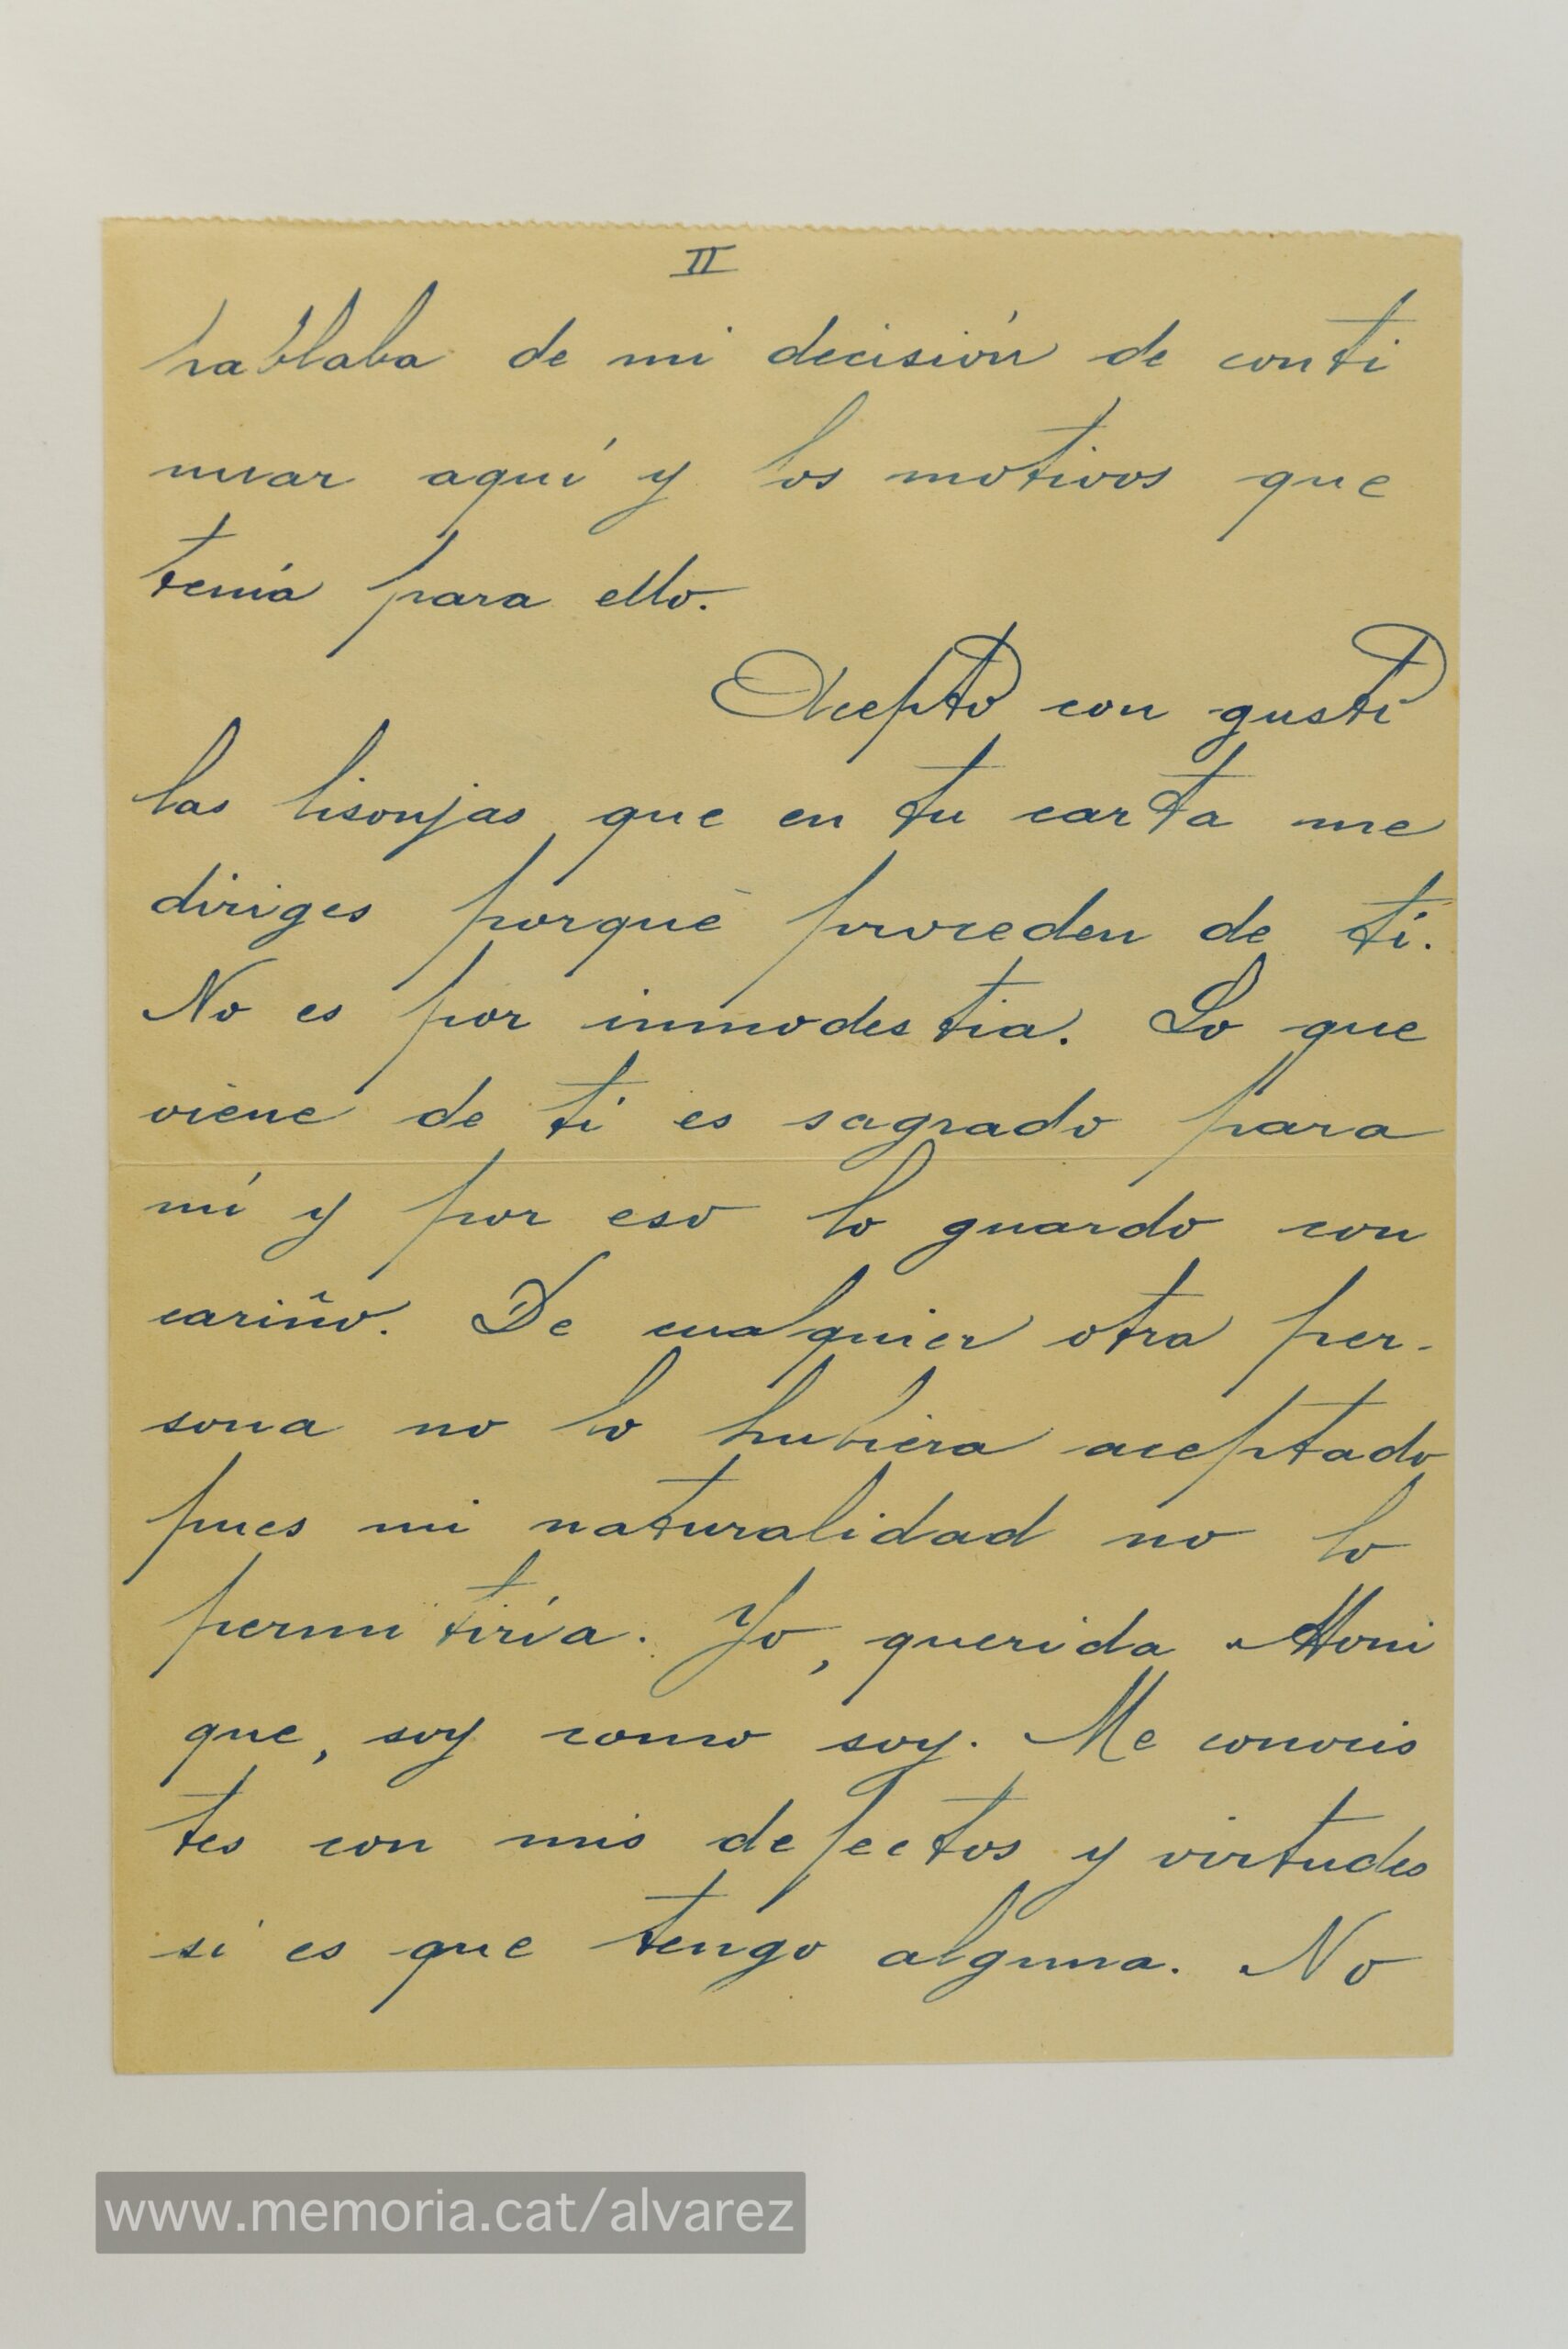 II
hablaba de mi decisión de conti
nuar aquí y los motivos que
tenía para ello.
Acepto con gusto
las lisonjas que en tu carta me
diriges porque proceden de tí.
No es por inmodestia. Lo que
viene de ti es sagrado para
mí y por eso lo guardo con
cariño. De cualquier otra per-
sona no lo hubiera aceptado
pues mi naturalidad no lo
permitiría. Yo, querida Moni
que, soy como soy. Me conocis
tes con mis defectos y virtudes
si es que tengo alguna. No
www.memoria.cat/alvarez